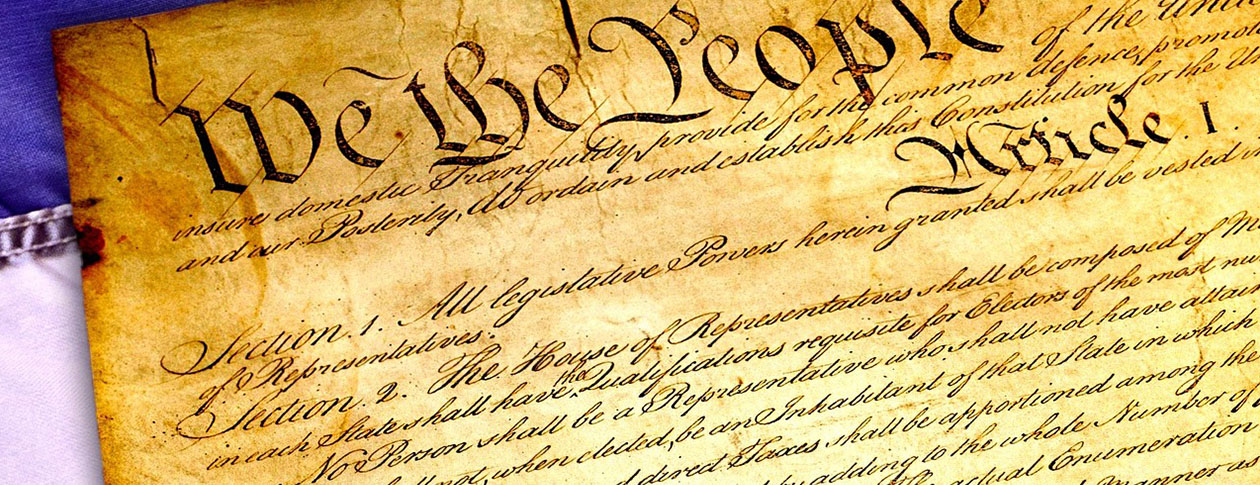 We the People
of the Unit
insure domestic Tranquility, provide for the common defence, promot
and our Posterity, do ordain and establish this Constitution for the Un
Article. I.
Section. 1. All legislative Powers herein granted shall be vested in
of Representatives.
Section. 2. The House of Representatives shall be composed of M
in each State shall have the Qualifications requisite for Electors of the most nu
No Person shall be a Representative who shall not have attain
not, when elected, be an Inhabitant of that State in which
direct Taxes shall be apportioned among the
by adding to the whole Number of
actual Enumeration
Manner as